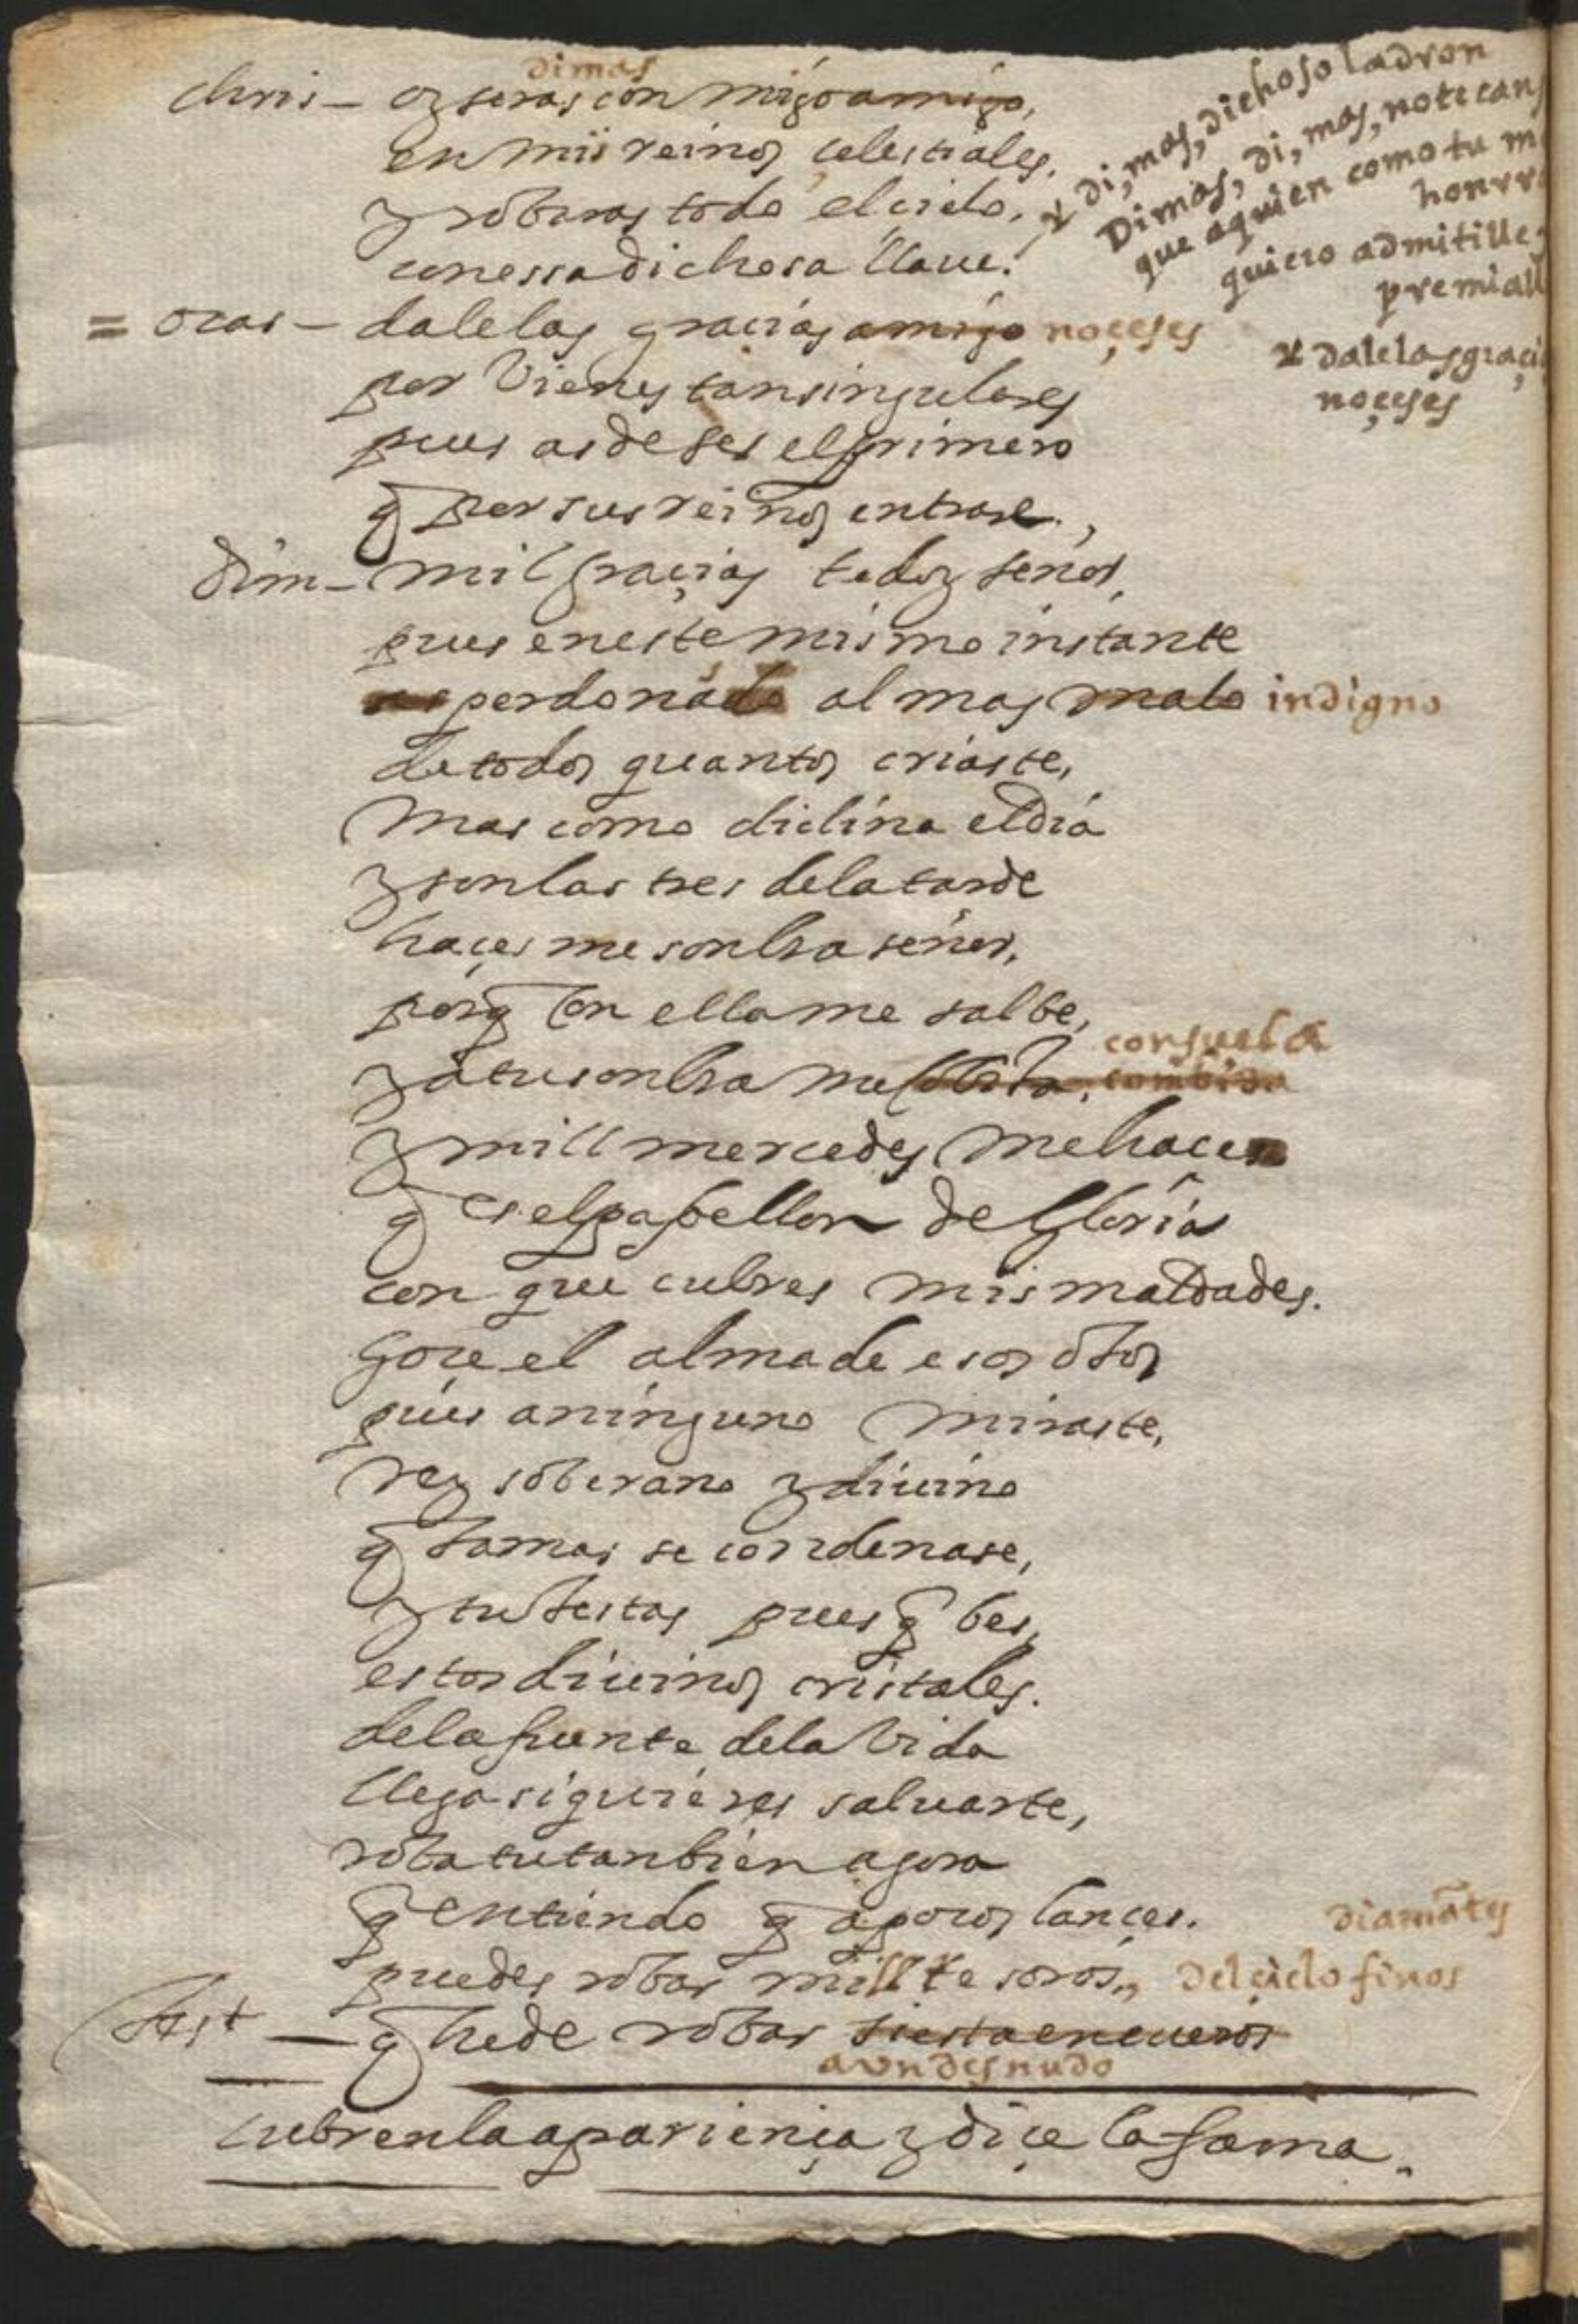 dimas
chris – oy seras con migo amigo,
en mis reinos celestiales,
y robaras todo el cielo,
con essa dichosa llave.
+ di, mas, dichoso ladron
Dimas, di, mas, no te cans
que a quien como tu m
honrr
quiero admitille
premiall
= oras – dalelas gracias amigo no ceses
+ dalelas graci
no ceses
por vienes tan singulares
pues as de ser el primero
q̄ por sus reinos entrase,
dim – mil gracias te doy señor,
pues en este mismo instante
perdonado al mas malo indigno
de todos quantos criaste,
mas como diclina el dia
y son las tres de la tarde
haces me sonbra señor,
porq̄ con ella me salbe,
consuela
y a tu sonbra me conbida
y mill mercedes me hacen
q̄ es el pabellon de gloria
con que cubres mis maldades.
goce el alma de esos ojos
pues a ninguno miraste,
rey soberano y divino
q̄ jamas se condenase,
y tu jestas pues q̄ bes,
estos divinos cristales.
de la fuente de la vida
llega si quieres salvarte,
roba tu tanbien agora
q̄ entiendo q̄ a pocos lances. diamātes
puedes robar mill tesoros, del cielo finos
Jest – q̄ he de robar si esta en cueros
aun desnudo
cubren la apariencia y diçe la fama.